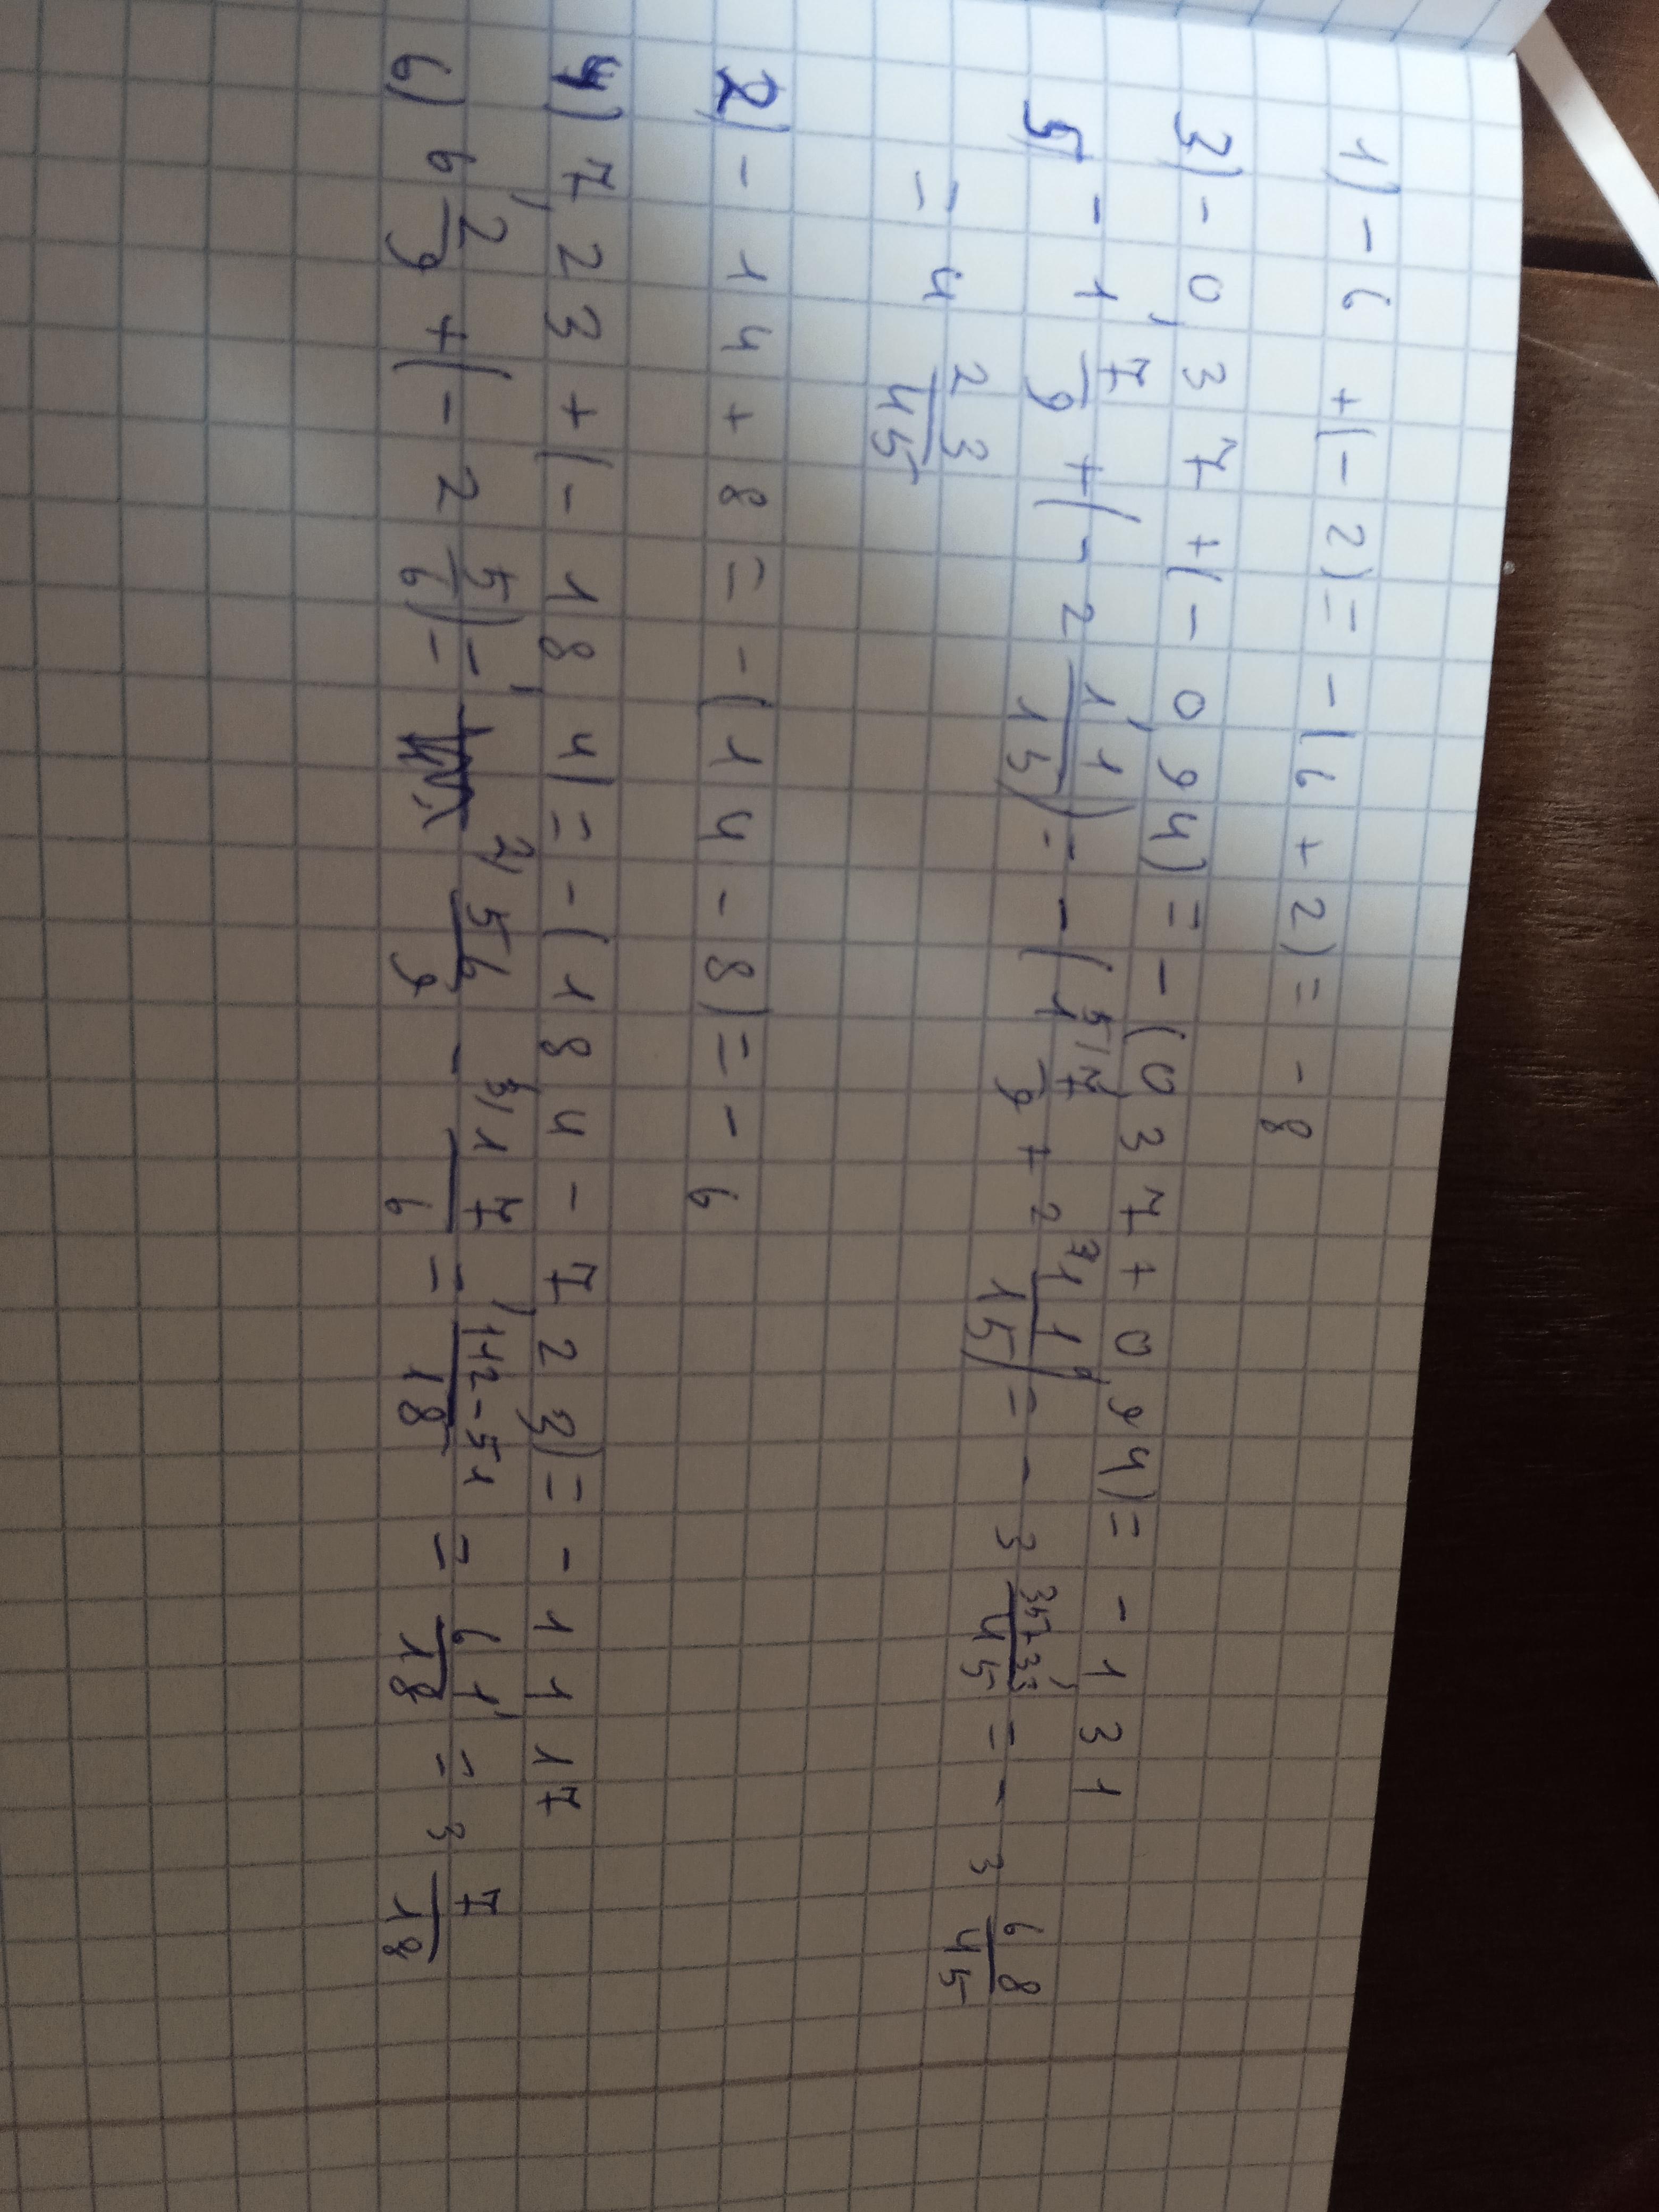 1) -6 + (-2) = -(6 + 2) = -8
3) -0,37 + (-0,94) = -(0,37 + 0,94) = -1,31
5) -1 7/9 + (-2 11/15) = -(1 5/ 7/9 + 2 3/ 11/15) = -3 35+33/45 = -3 68/45
= 4 23/45
2) -14 + 8 = -(14 - 8) = -6
4) 7,23 + (-18,4) = -(18,4 - 7,23) = -11,17
6) 6 2/9 + (-2 5/6) = 2/ 56/9 - 3/ 17/6 = 112-51/18 = 61/18 = 3 7/18